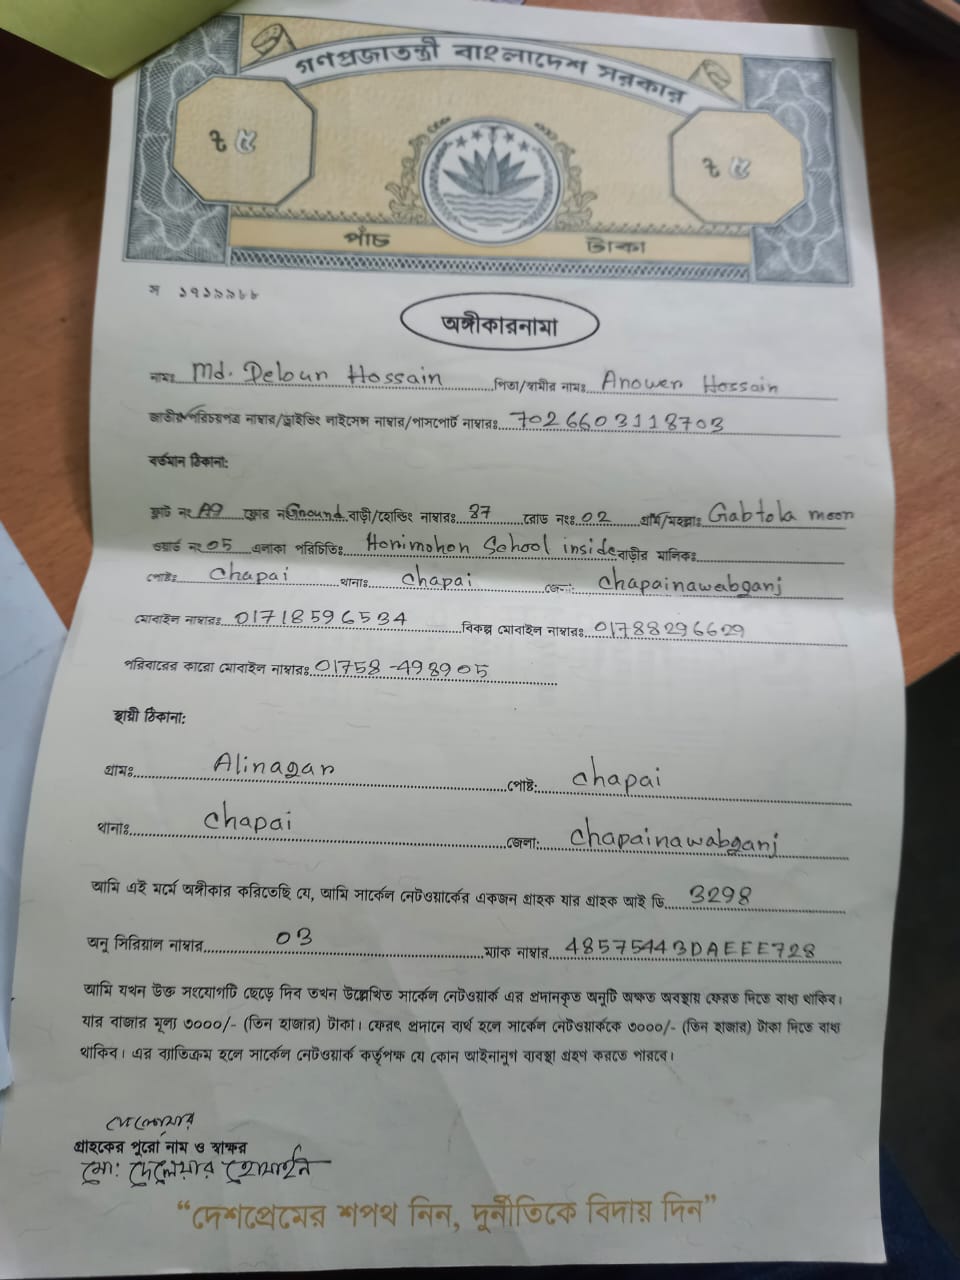 গণপ্রজাতন্ত্রী বাংলাদেশ সরকার
৳ ৫ ৳ ৫
পাঁচ টাকা
স ১৭১৯৯৮৮
অঙ্গীকারনামা
নামঃ Md. Deloun Hossain পিতা/স্বামীর নামঃ Anowen Hossain
জাতীয় পরিচয়পত্র নাম্বার/ড্রাইভিং লাইসেন্স নাম্বার/পাসপোর্ট নাম্বারঃ 7026603118703
বর্তমান ঠিকানা:
ফ্লাট নং A9 ফ্লোর নং Ground বাড়ী/হোল্ডিং নাম্বারঃ 37 রোড নংঃ 02 গ্রাম/মহল্লাঃ Gabtola moor
ওয়ার্ড নং 05 এলাকা পরিচিতিঃ Horimohon School inside বাড়ীর মালিকঃ
পোষ্টঃ Chapai থানাঃ Chapai জেলা: Chapainawabganj
মোবাইল নাম্বারঃ 01718596534 বিকল্প মোবাইল নাম্বারঃ 01788296629
পরিবারের কারো মোবাইল নাম্বারঃ 01758-498905
স্থায়ী ঠিকানা:
গ্রামঃ Alinagar পোষ্ট: Chapai
থানাঃ Chapai জেলা: Chapainawabganj
আমি এই মর্মে অঙ্গীকার করিতেছি যে, আমি সার্কেল নেটওয়ার্কের একজন গ্রাহক যার গ্রাহক আই ডি 3298
অনু সিরিয়াল নাম্বার 03 ম্যাক নাম্বার 48575443DAEEE728
আমি যখন উক্ত সংযোগটি ছেড়ে দিব তখন উল্লেখিত সার্কেল নেটওয়ার্ক এর প্রদানকৃত অনুটি অক্ষত অবস্থায় ফেরত দিতে বাধ্য থাকিব।
যার বাজার মূল্য ৩০০০/- (তিন হাজার) টাকা। ফেরৎ প্রদানে ব্যর্থ হলে সার্কেল নেটওয়ার্ককে ৩০০০/- (তিন হাজার) টাকা দিতে বাধ্য
থাকিব। এর ব্যাতিক্রম হলে সার্কেল নেটওয়ার্ক কর্তৃপক্ষ যে কোন আইনানুগ ব্যবস্থা গ্রহণ করতে পারবে।
দেলোয়ার
গ্রাহকের পুরো নাম ও স্বাক্ষর
মো: দেলোয়ার হোসাইন
“দেশপ্রেমের শপথ নিন, দুর্নীতিকে বিদায় দিন”